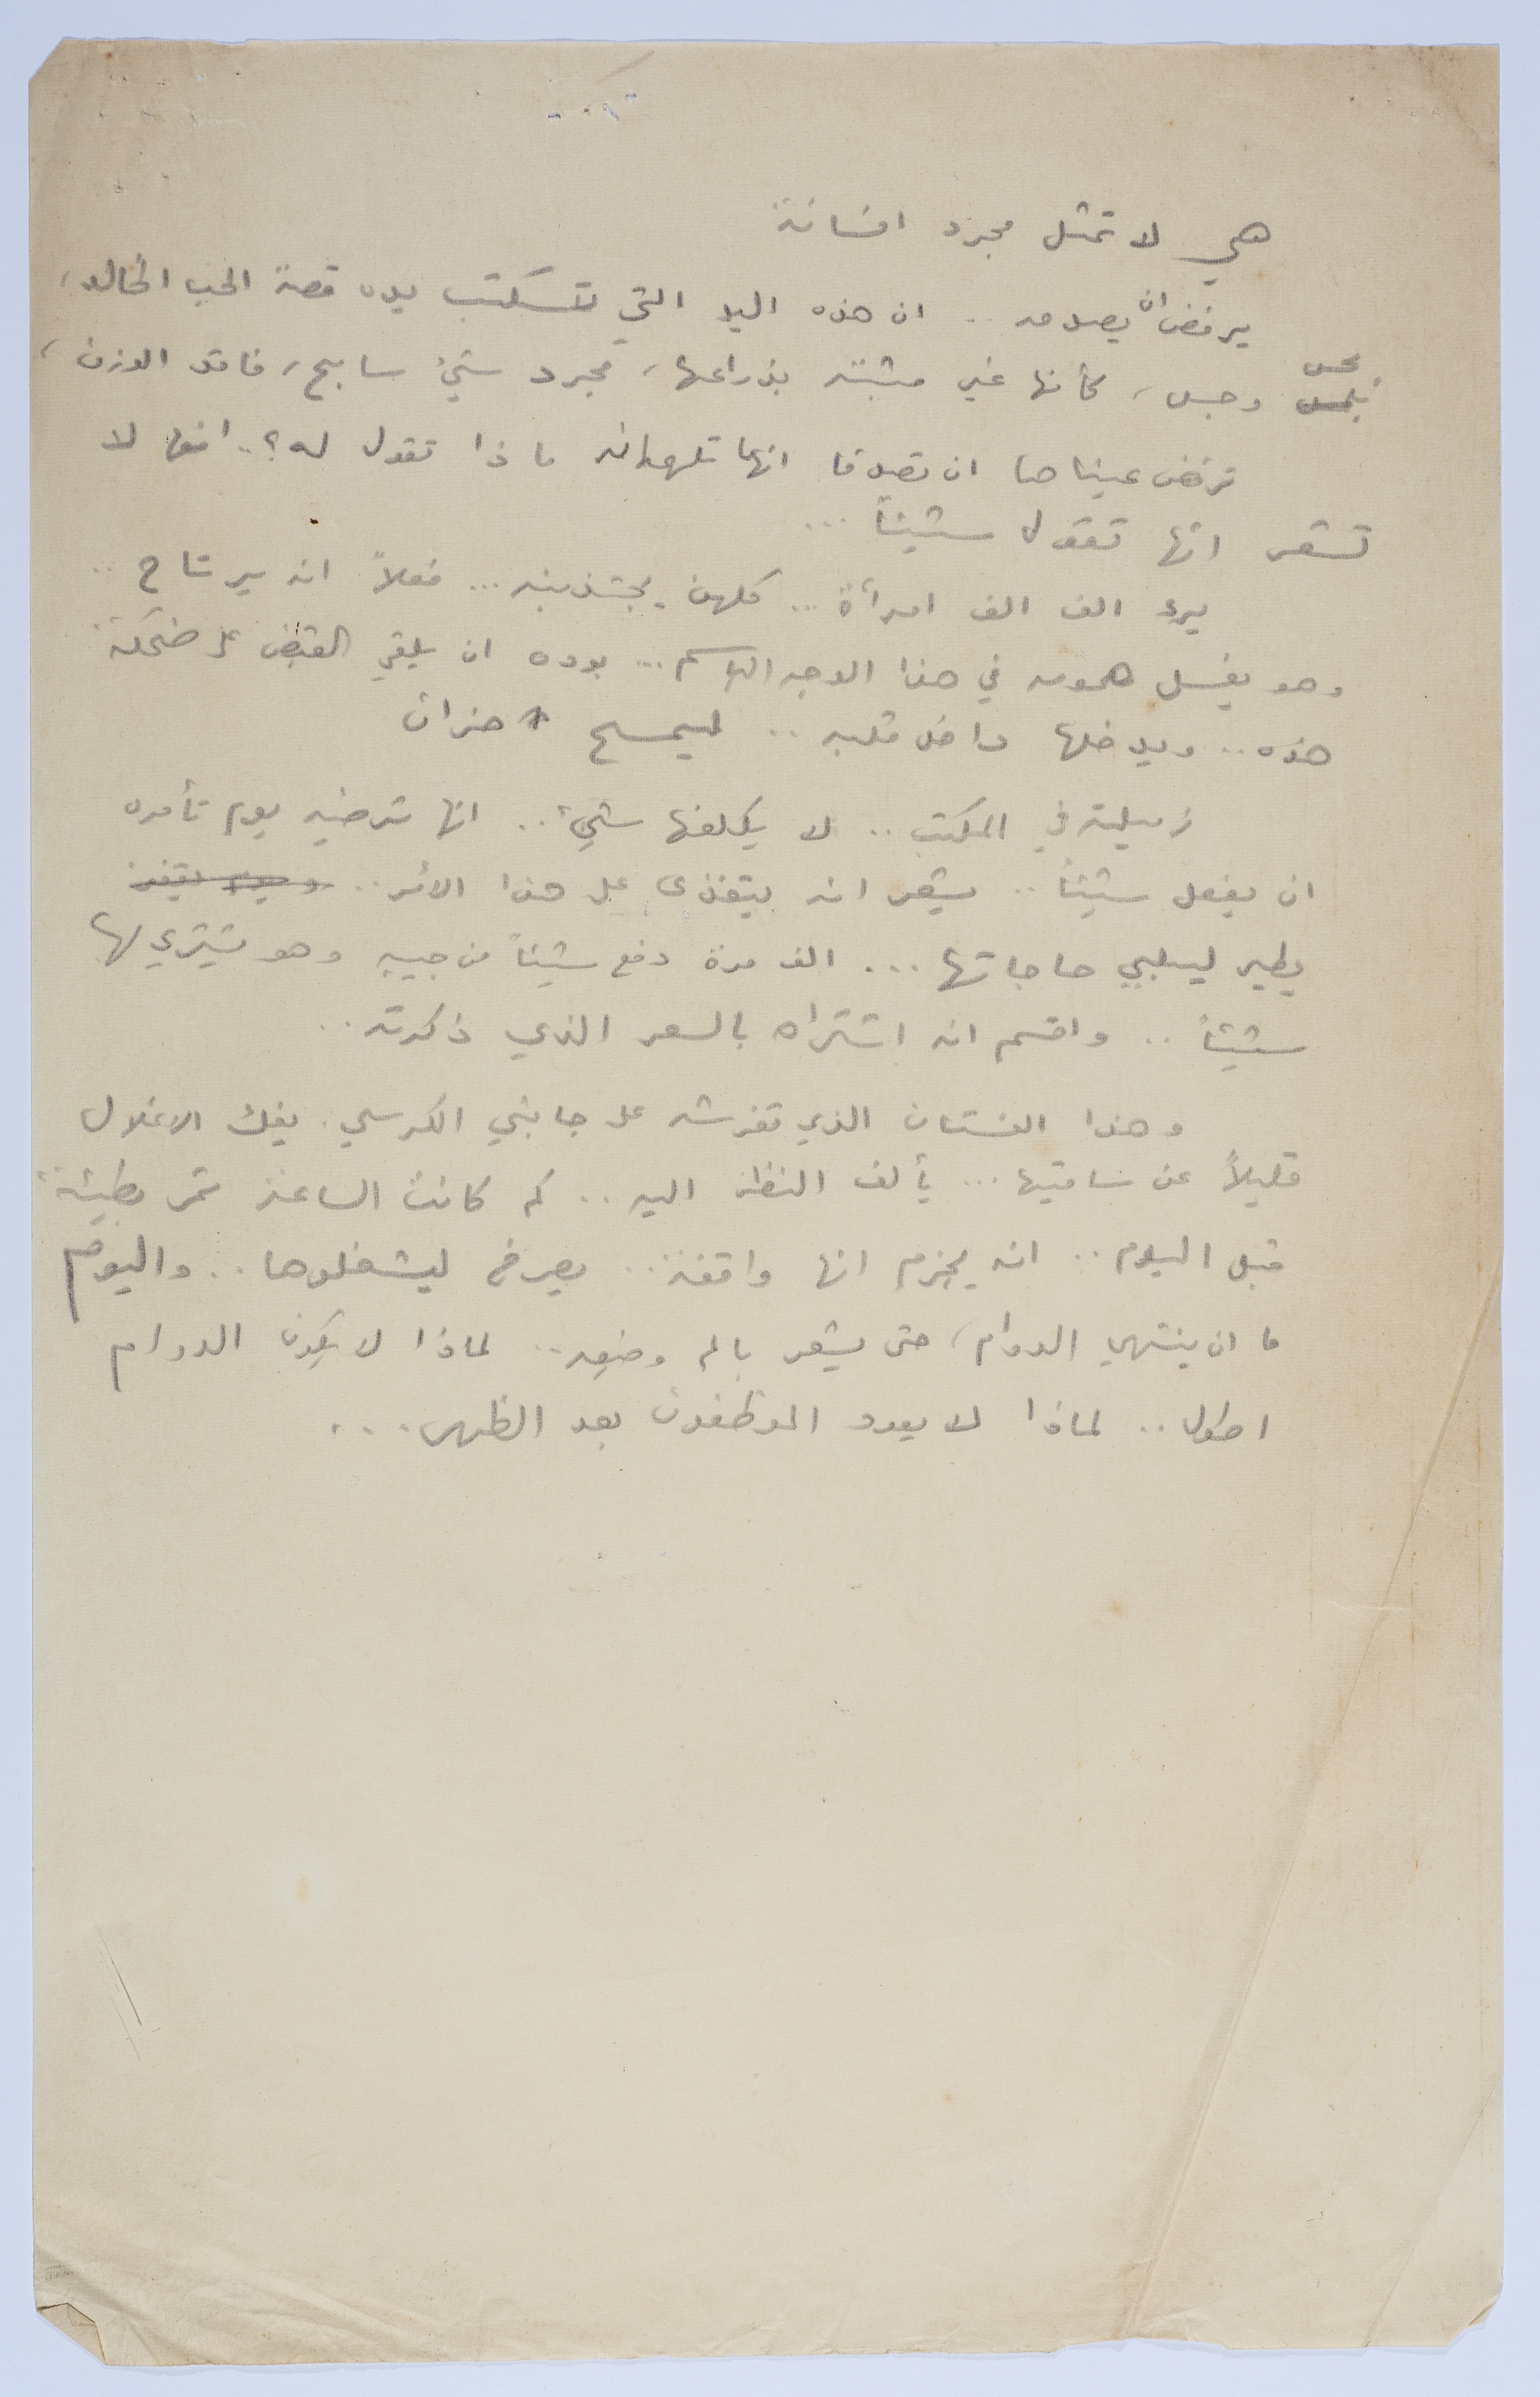 هي لا تمثل مجرد انسانة
يرفض ان يصدمه .. ان هذه اليد التي تكتب بيده قصة الحب الخالد،
بحس
وجس، كأنها غير مثبته بذراعها، مجرد شيء سابح، فاقد الوزن،
ترفض عيناها ان تصدقا انها تلهمانه ماذا تقول له؟ .. انها لا
تشعر انها تقول شيئاً ...
يرى الف الف امرأة ... كلهن يجتذبنه ... فعلاً انه يرتاح ..
وهو يغسل همومه في هذا الوجه الباسم ... بوده ان يلقي القبض على ضحكة
هذه .. ويدخلها داخل قلبه .. ليمسح احزان
زميلته في المكتب .. لا يكلفها شيء .. انها ترضيه يوم تأمره
ان يفعل شيئاً .. يشعر انه يتغذى على هذا الأمر ..
يطير ليلبي حاجاتها ... الف مرة دفع شيئاً من جيبه وهو يشتري لها
شيئاً .. واقسم انه اشتراه بالسعر الذي ذكرته ..
وهذا الفستان الذي تفرشه على جانبي الكرسي . يفك الاغلال
قليلاً عن ساقيها ... يألف النظر اليه .. كم كانت الساعة تمر بطيئة
قبل اليوم .. انه يجزم انها واقفة .. يصرخ ليشغلوها .. واليوم
ما ان ينتهي الدوام، حتى يشعر بالم وضعه .. لماذا لا يكون الدوام
اطول .. لماذا لا يعود الموظفون بعد الظهر ...